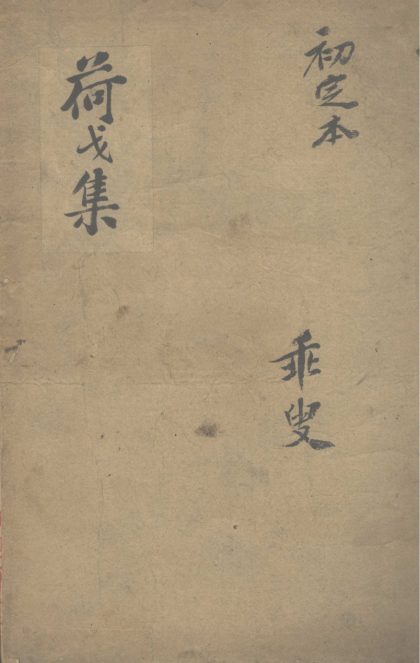 初定本
乖叟
荷戈集